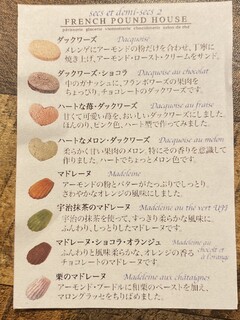 secs et demi-secs 2
FRENCH POUND HOUSE
ダックワーズ Dacquoise
メレンゲにアーモンドの粉だけを合わせ、丁寧に
焼き上げ、アーモンド・ロースト・クリームをサンド。
ダックワーズ・ショコラ Dacquoise au chocolat
中のガナッシュに、フランボワーズの果肉を
ちょっぴり、チョコレートのダックワーズです。
ハートな苺・ダックワーズ Dacquoise au fraise
甘くて可愛い苺を、おいしいダックワーズにしました。
ほんのり、ピンク色、ハート型で作ってみました。
ハートなメロン・ダックワーズ Dacquoise au melon
柔らかく甘い果肉のメロン、特にその香りを意識して
作りました。ハートでちょっとメロン色です。
マドレーヌ Madeleine
アーモンドの粉とバターがたっぷりでしっとり、
さわやかなオレンジの風味にしました。
宇治抹茶のマドレーヌ Madeleine au the vert UJI
宇治の抹茶を使って、すっきり柔らかな風味に、
ふんわり、しっとりしたマドレーヌです。
マドレーヌ・ショコラ・オランジュ Madeleine au chocolat et à l'orange
ふんわりと風味柔らかな、オレンジの香る
チョコレートのマドレーヌです。
栗のマドレーヌ Madeleine aux châtaignes
アーモンド・プードルに和栗のペーストを加え、
マロングラッセをちりばめました。